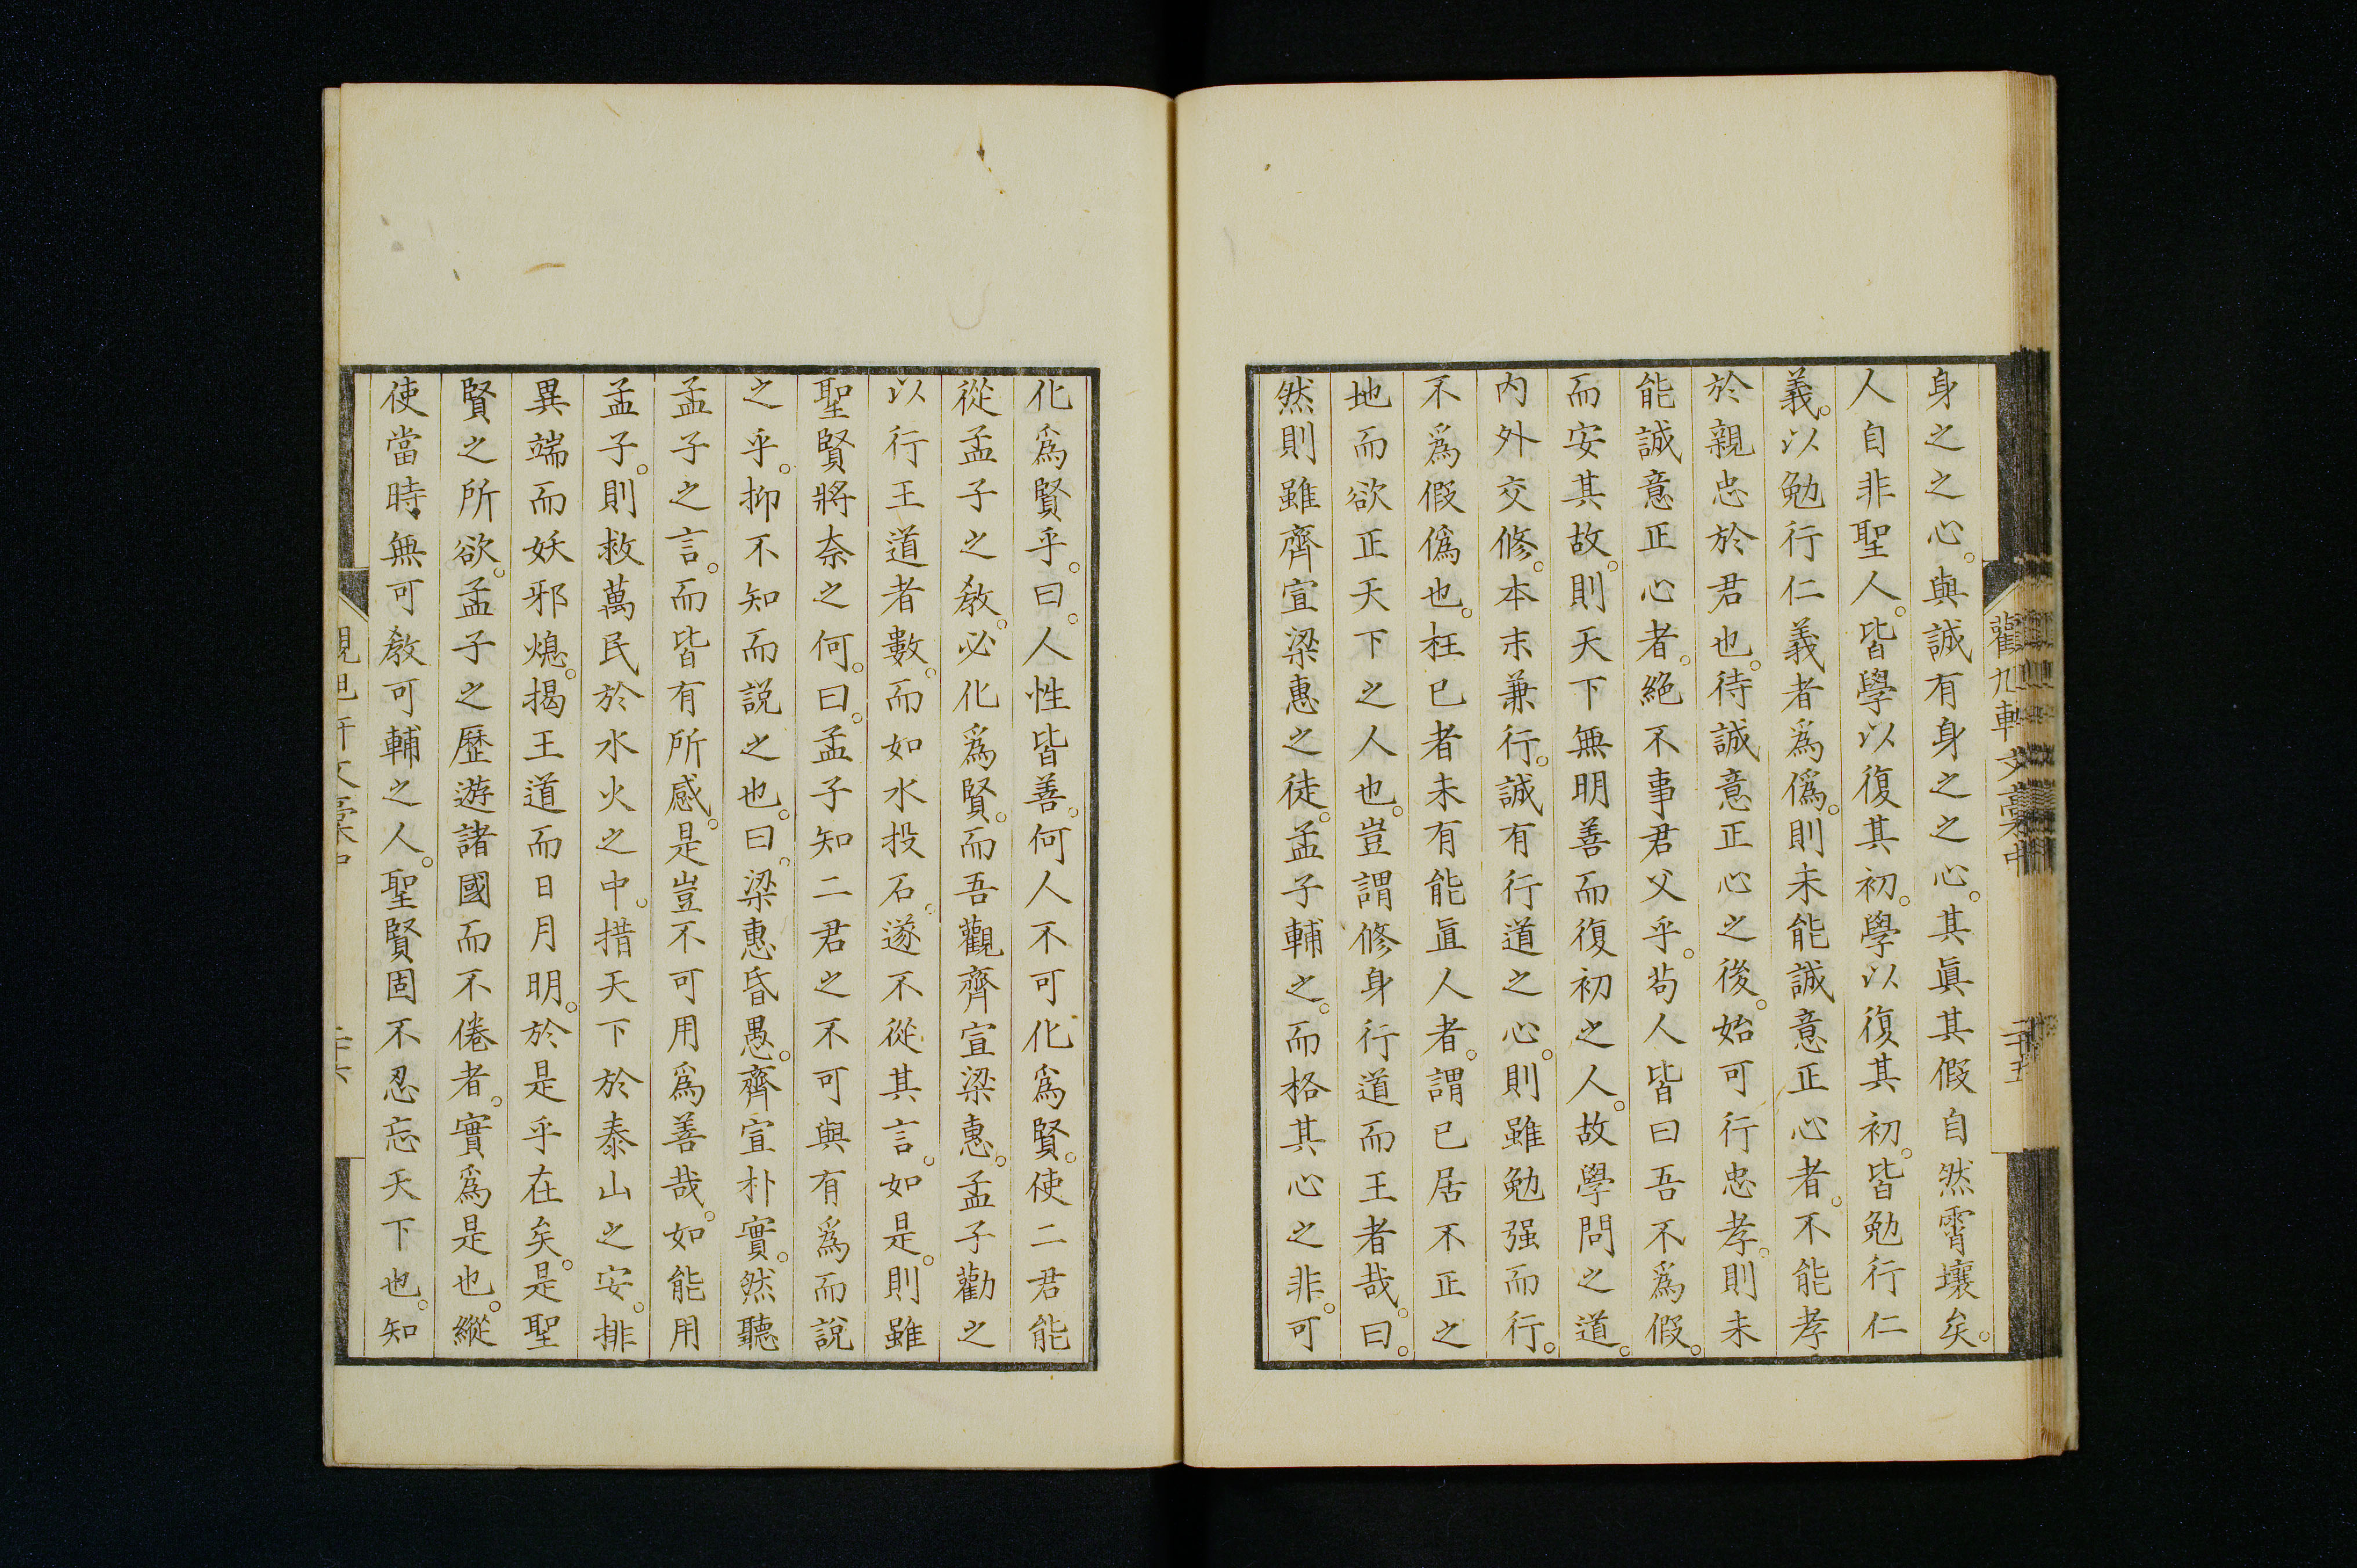 身之之心。與誠有身之之心。其眞其假自然霄壤矣。
人自非聖人。皆學以復其初。學以復其初。皆勉行仁
義。以勉行仁義者爲僞。則未能誠意正心者。不能孝
於親忠於君也。待誠意正心之後。始可行忠孝。則未
能誠意正心者。絕不事君父乎。苟人皆曰吾不爲假。
而安其故。則天下無明善而復初之人。故學問之道。
內外交修。本末兼行。誠有行道之心。則雖勉强而行。
不爲假僞也。枉已者未有能直人者。謂已居不正之
地而欲正天下之人也。豈謂修身行道而王者哉。曰。
然則雖齊宣梁惠之徒。孟子輔之。而格其心之非。可
化爲賢乎。曰。人性皆善。何人不可化爲賢。使二君能
從孟子之敎。必化爲賢。而吾觀齊宣梁惠。孟子勸之
以行王道者數。而如水投石。遂不從其言。如是。則雖
聖賢將柰之何。曰。孟子知二君之不可與有爲而說
之乎。抑不知而說之也。曰。梁惠昏愚。齊宣朴實。然聽
孟子之言。而皆有所感。是豈不可用爲善哉。如能用
孟子。則救萬民於水火之中。措天下於泰山之安。排
異端而妖邪熄。揭王道而日月明。於是乎在矣。是聖
賢之所欲。孟子之歷遊諸國而不倦者。實爲是也。縱
使當時無可敎可輔之人。聖賢固不忍忘天下也。知